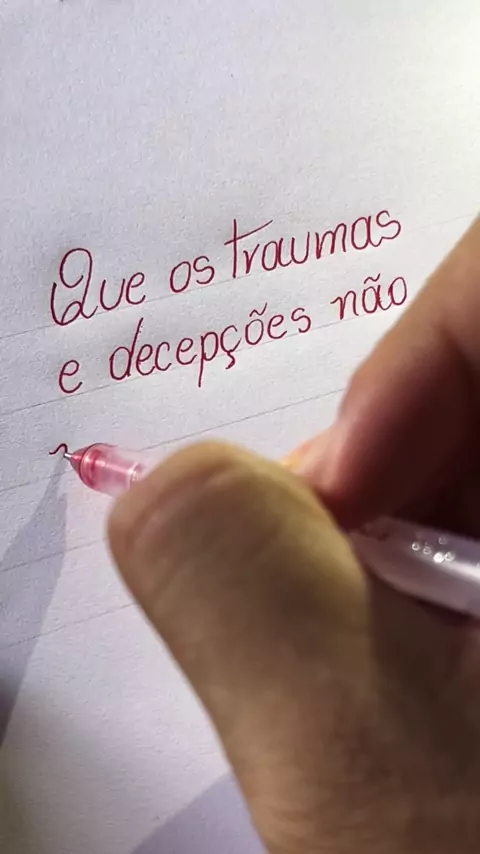 Que os traumas
e decepções não